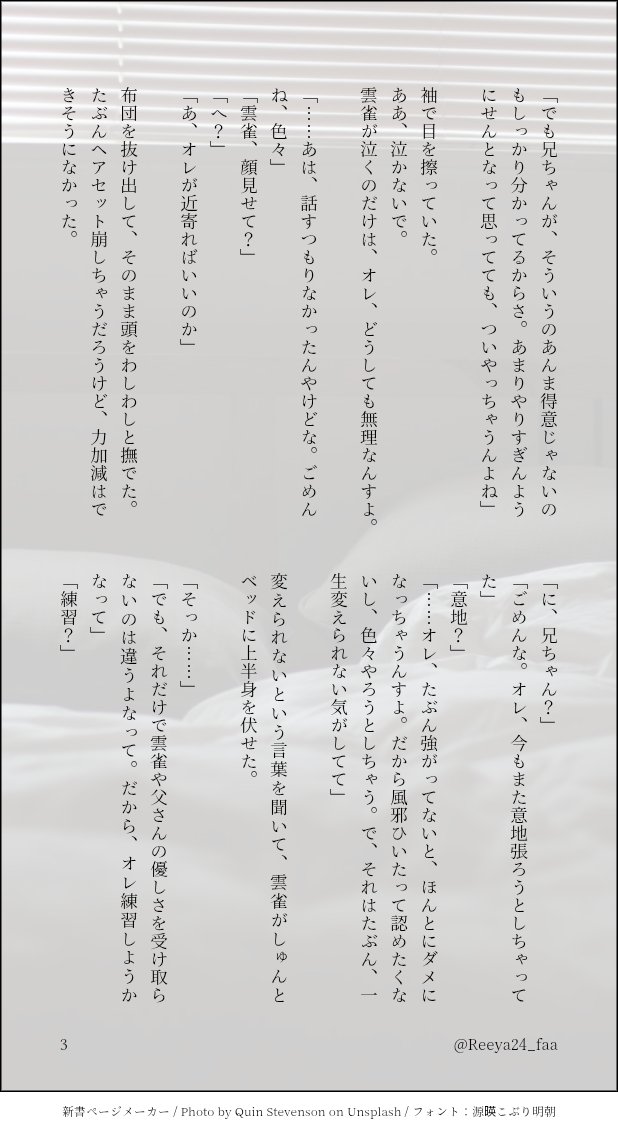 「でも兄ちゃんが、そういうのあんま得意じゃないの
もしっかり分かってるからさ。あまりやりすぎんよう
にせんとなって思ってても、ついやっちゃうんよね」
袖で目を擦っていた。
ああ、泣かないで。
雲雀が泣くのだけは、オレ、どうしても無理なんすよ。
「……あは、話すつもりなかったんやけどな。ごめん
ね、色々」
「雲雀、顔見せて？」
「へ？」
「あ、オレが近寄ればいいのか」
布団を抜け出して、そのまま頭をわしわしと撫でた。
たぶんヘアセット崩しちゃうだろうけど、力加減はで
きそうになかった。
「に、兄ちゃん？」
「ごめんな。オレ、今もまた意地張ろうとしちゃって
た」
「意地？」
「……オレ、たぶん強がってないと、ほんとにダメに
なっちゃうんすよ。だから風邪ひいたって認めたくな
いし、色々やろうとしちゃう。で、それはたぶん、一
生変えられない気がしてて」
変えられないという言葉を聞いて、雲雀がしゅんと
ベッドに上半身を伏せた。
「そっか……」
「でも、それだけで雲雀や父さんの優しさを受け取ら
ないのは違うよなって。だから、オレ練習しようか
なって」
「練習？」
3
@Reeya24_faa
新書ページメーカー / Photo by Quin Stevenson on Unsplash / フォント：源暎こぶり明朝